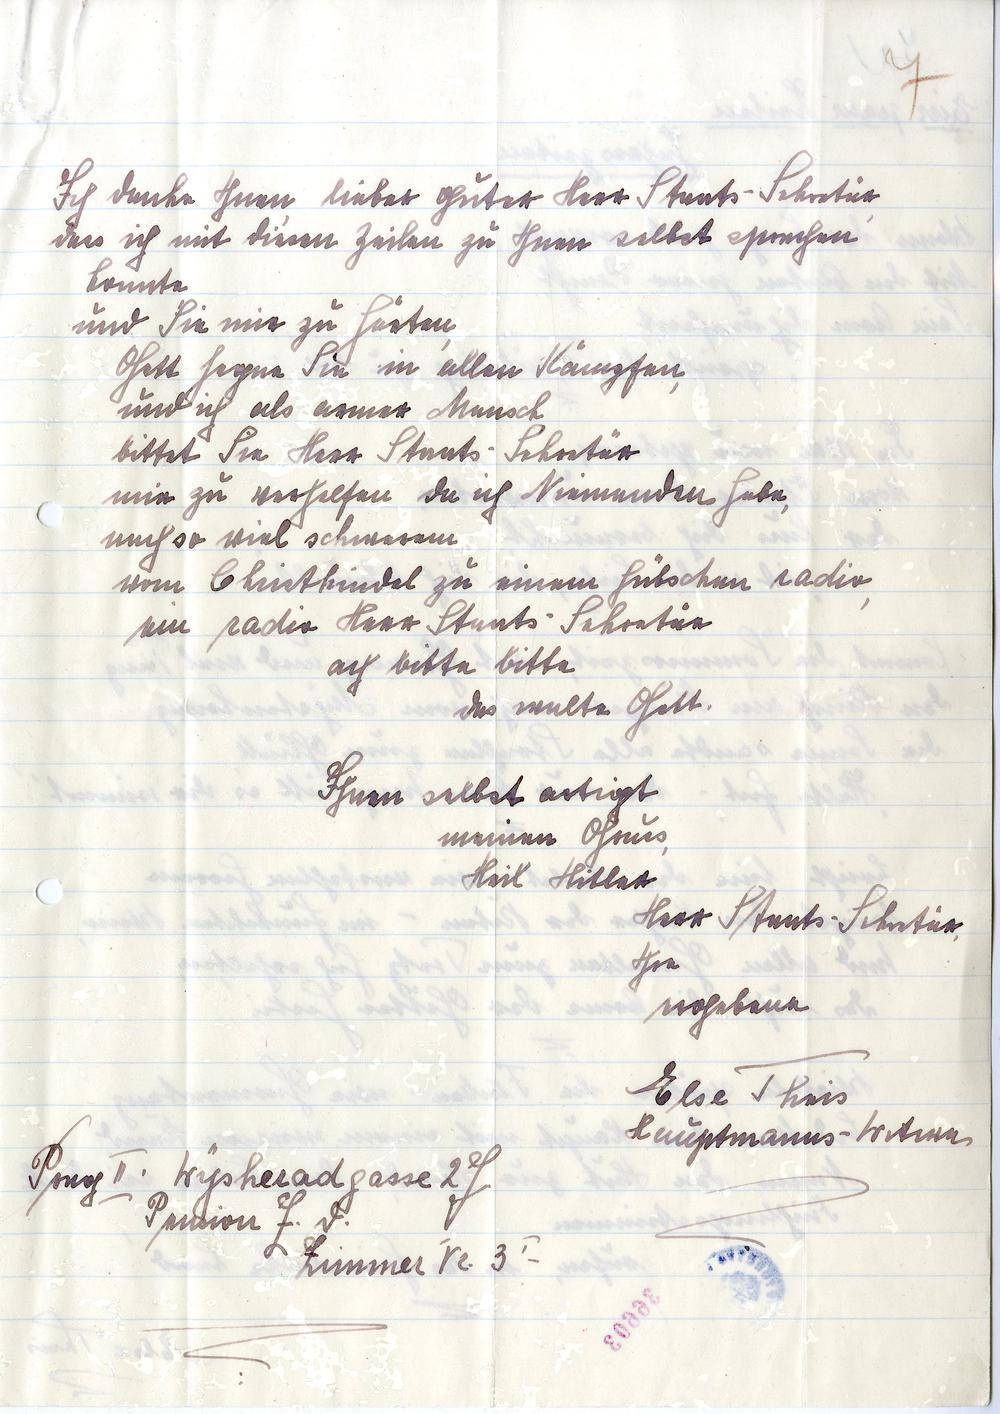 7
Ich danke Ihnen lieber guter Herr Staats-Sekretär,
dass ich mit diesen Zeilen zu Ihnen selbst sprechen
konnte
und Sie mir zu hörten,
Gott segne Sie in allen Kämpfen,
und ich als armer Mensch
bittet Sie Herr Staats-Sekretär
mir zu verhelfen da ich Niemanden habe,
nach so viel schwerem
vom Christkindel zu einem hübschen radio,
ein radio Herr Staats-Sekretär
ach bitte bitte
das walte Gott.
Ihnen selbst artigst
meinen Gruss,
Heil Hitler
Herr Staats-Sekretär,
Ihre
ergebene
Else Theis
Hauptmanns-Witwe
Prag II. Wyscheradgasse
Pension
Zimmer Nr. 3
36603